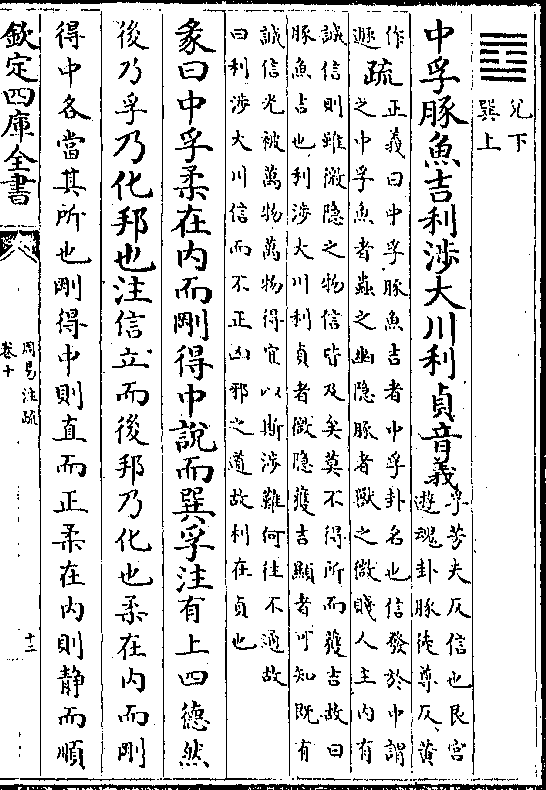 兌下
巽上
中孚豚魚吉利涉大川利貞音義
孚芳夫反信也艮宮
遊魂卦豚徒尊反黃
作
遯
疏
正義曰中孚豚魚吉者中孚卦名也信發於中謂
之中孚魚者蟲之幽隱豚者獸之微賤人主內有
誠信則雖微隱之物信皆及矣莫不得所而獲吉故曰
豚魚吉也利涉大川利貞者微隱獲吉顯者可知既有
誠信光被萬物萬物得宜以斯涉難何往不通故
曰利涉大川信而不正凶邪之道故利在貞也
彖曰中孚柔在內而剛得中說而巽孚注有上四德然
後乃孚乃化邦也注信立而後邦乃化也柔在內而剛
得中各當其所也剛得中則直而正柔在內則靜而順
欽定四庫全書
周易注疏
卷十
十三